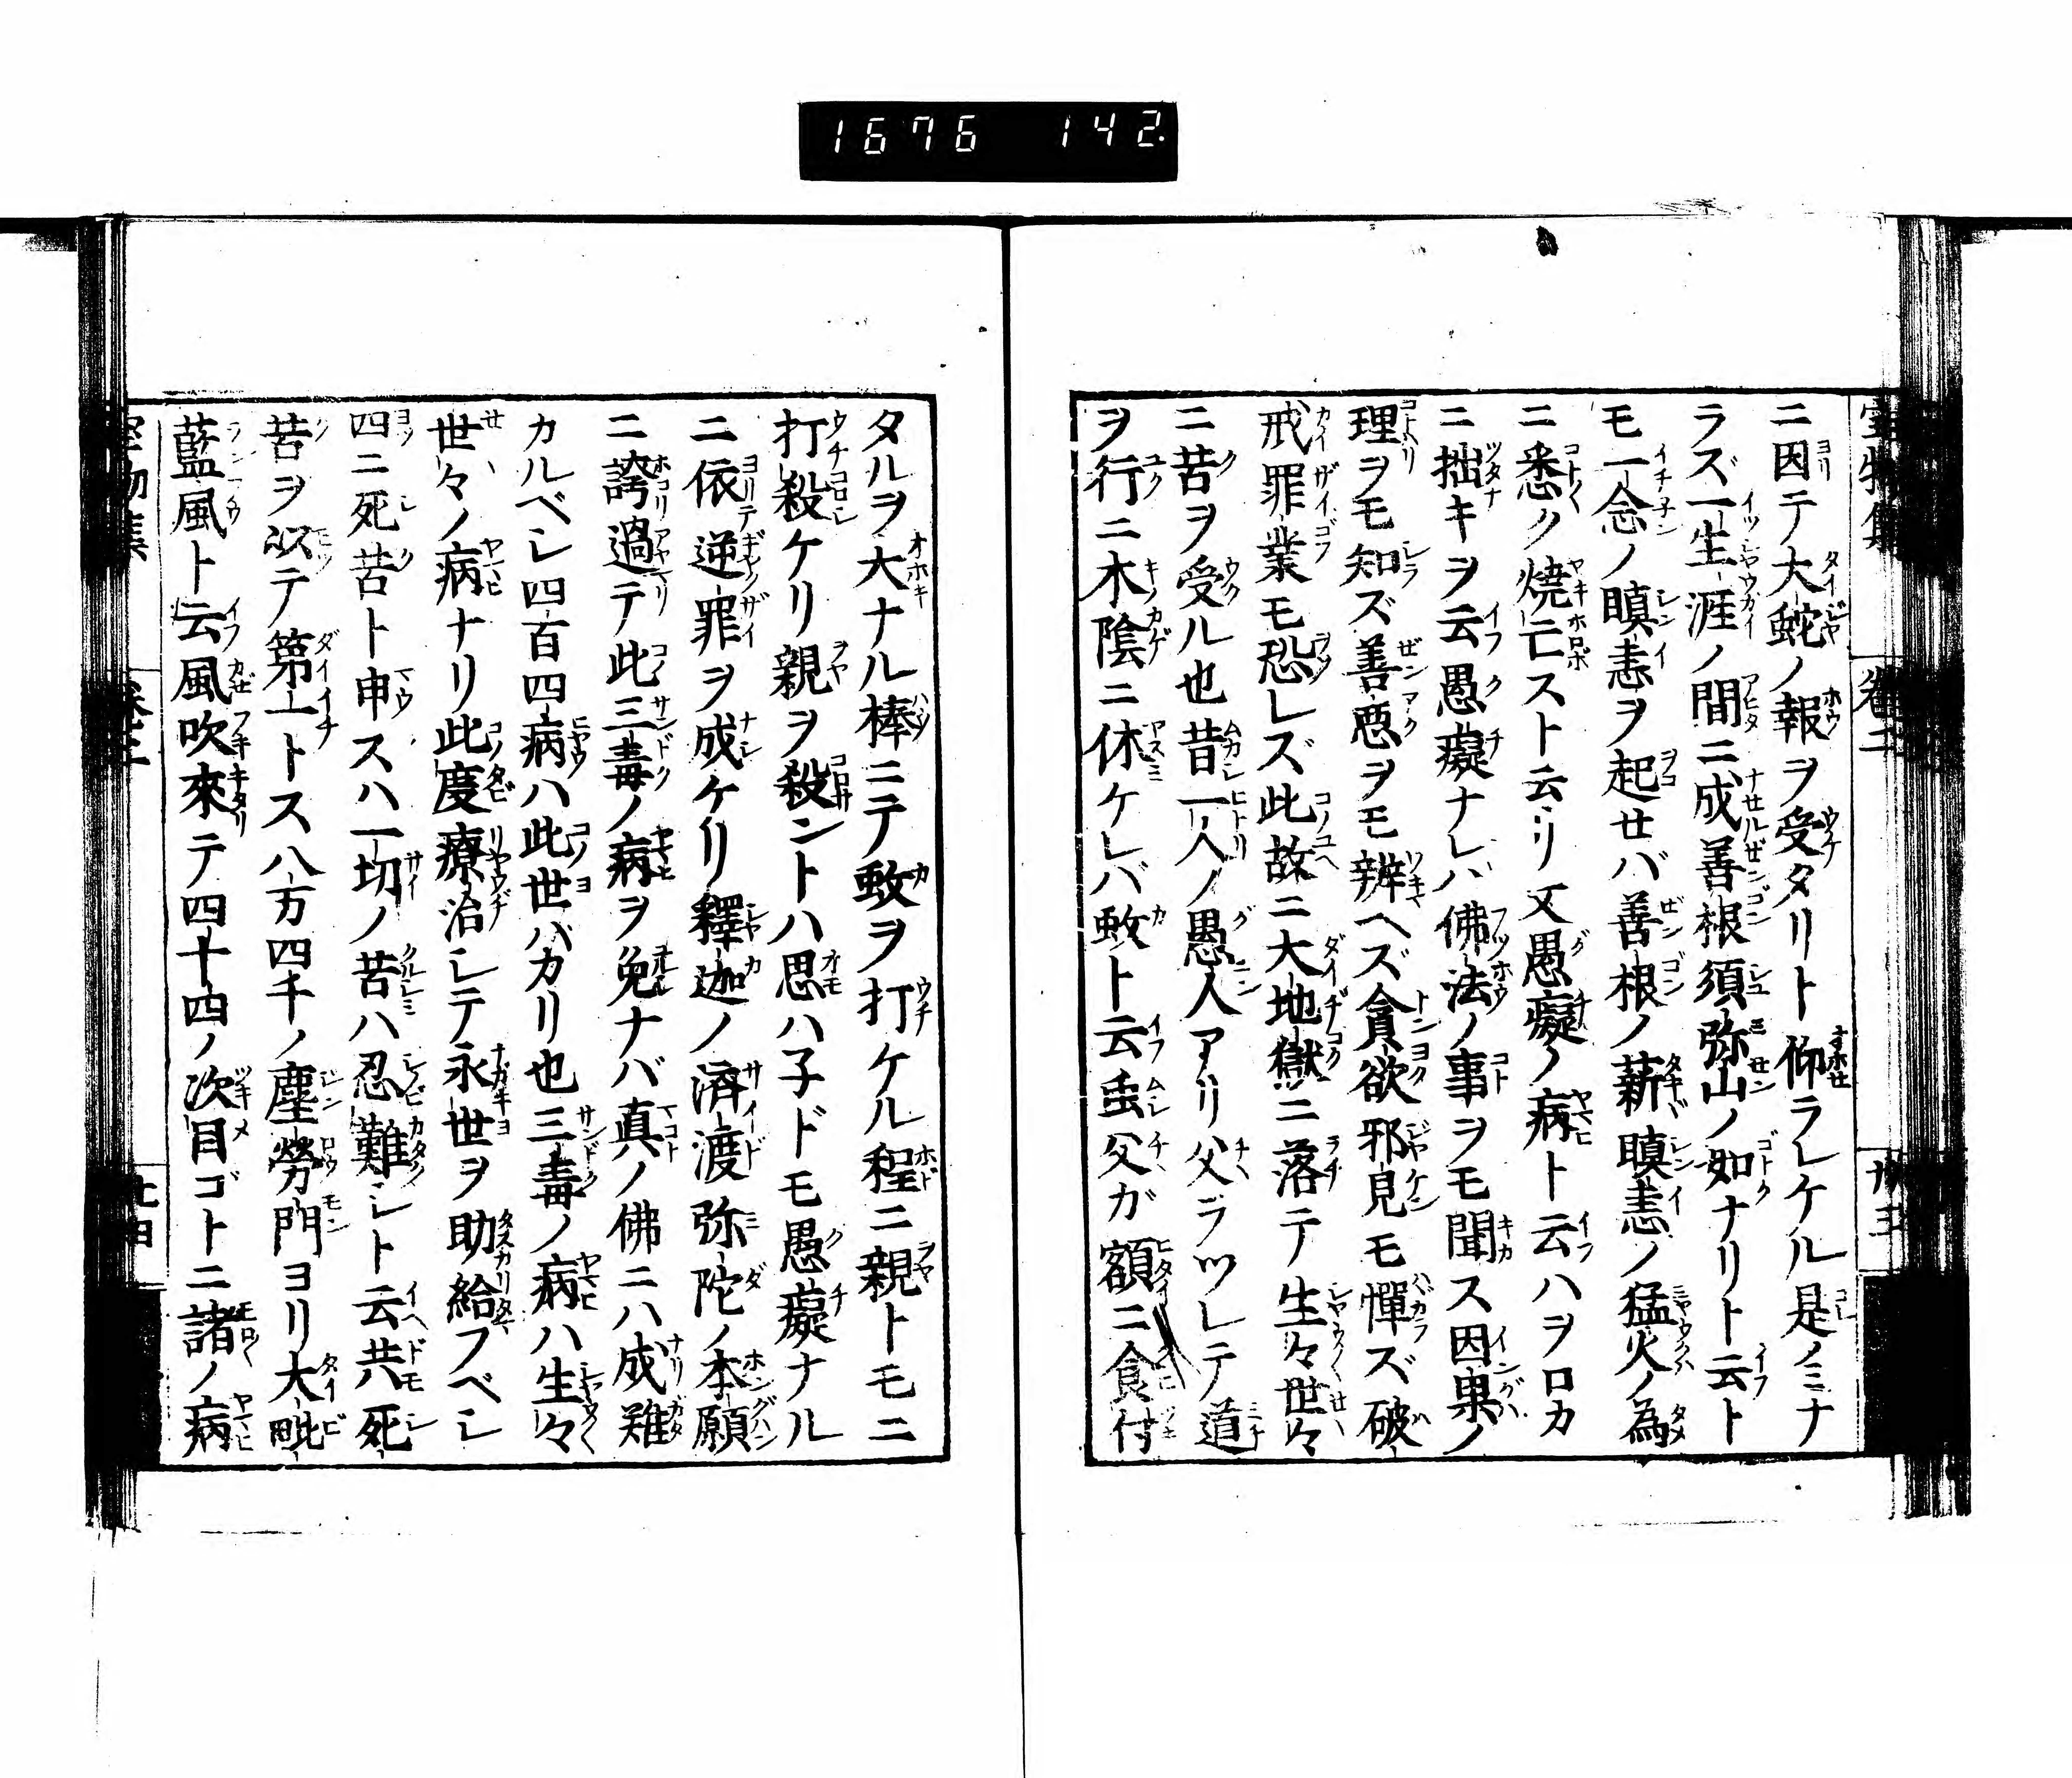 1676 142
ニ因テ大蛇ノ報ヲ受タリト仰ラレケル是ノミナ
ラズ一生涯ノ間ニ成善根須弥山ノ如ナリト云ト
モ一念ノ瞋恚ヲ起セバ善根ノ薪瞋恚ノ猛火ノ為
ニ悉ク焼亡スト云リ又愚癡ノ病ト云ハヲロカ
ニ拙キヲ云愚癡ナレバ佛法ノ事ヲモ聞ス因果ノ
理ヲモ知ズ善悪ヲモ辨ヘズ貪欲邪見モ憚ズ破
戒罪業モ恐レズ此故ニ大地獄ニ落テ生々世々
ニ苦ヲ受ル也昔一人ノ愚人アリ父ヲツレテ道
ヲ行ニ木陰ニ休ケレバ蚊ト云虫父ガ額ニ食付
タルヲ大ナル棒ニテ蚊ヲ打ケル程ニ親トモニ
打殺ケリ親ヲ殺ントハ思ハ子ドモ愚癡ナル
ニ依逆罪ヲ成ケリ釋迦ノ済渡弥陀ノ本願
ニ誇過テ此三毒ノ病ヲ免ナバ真ノ佛ニハ成難
カルベシ四百四病ハ此世バカリ也三毒ノ病ハ生々
世々ノ病ナリ此度療治シテ永世ヲ助給フベシ
四ニ死苦ト申スハ一切ノ苦ハ忍難シト云共死
苦ヲ以テ第一トス八万四千ノ塵勞門ヨリ大毗
藍風ト云風吹來テ四十四ノ次目ゴトニ諸ノ病